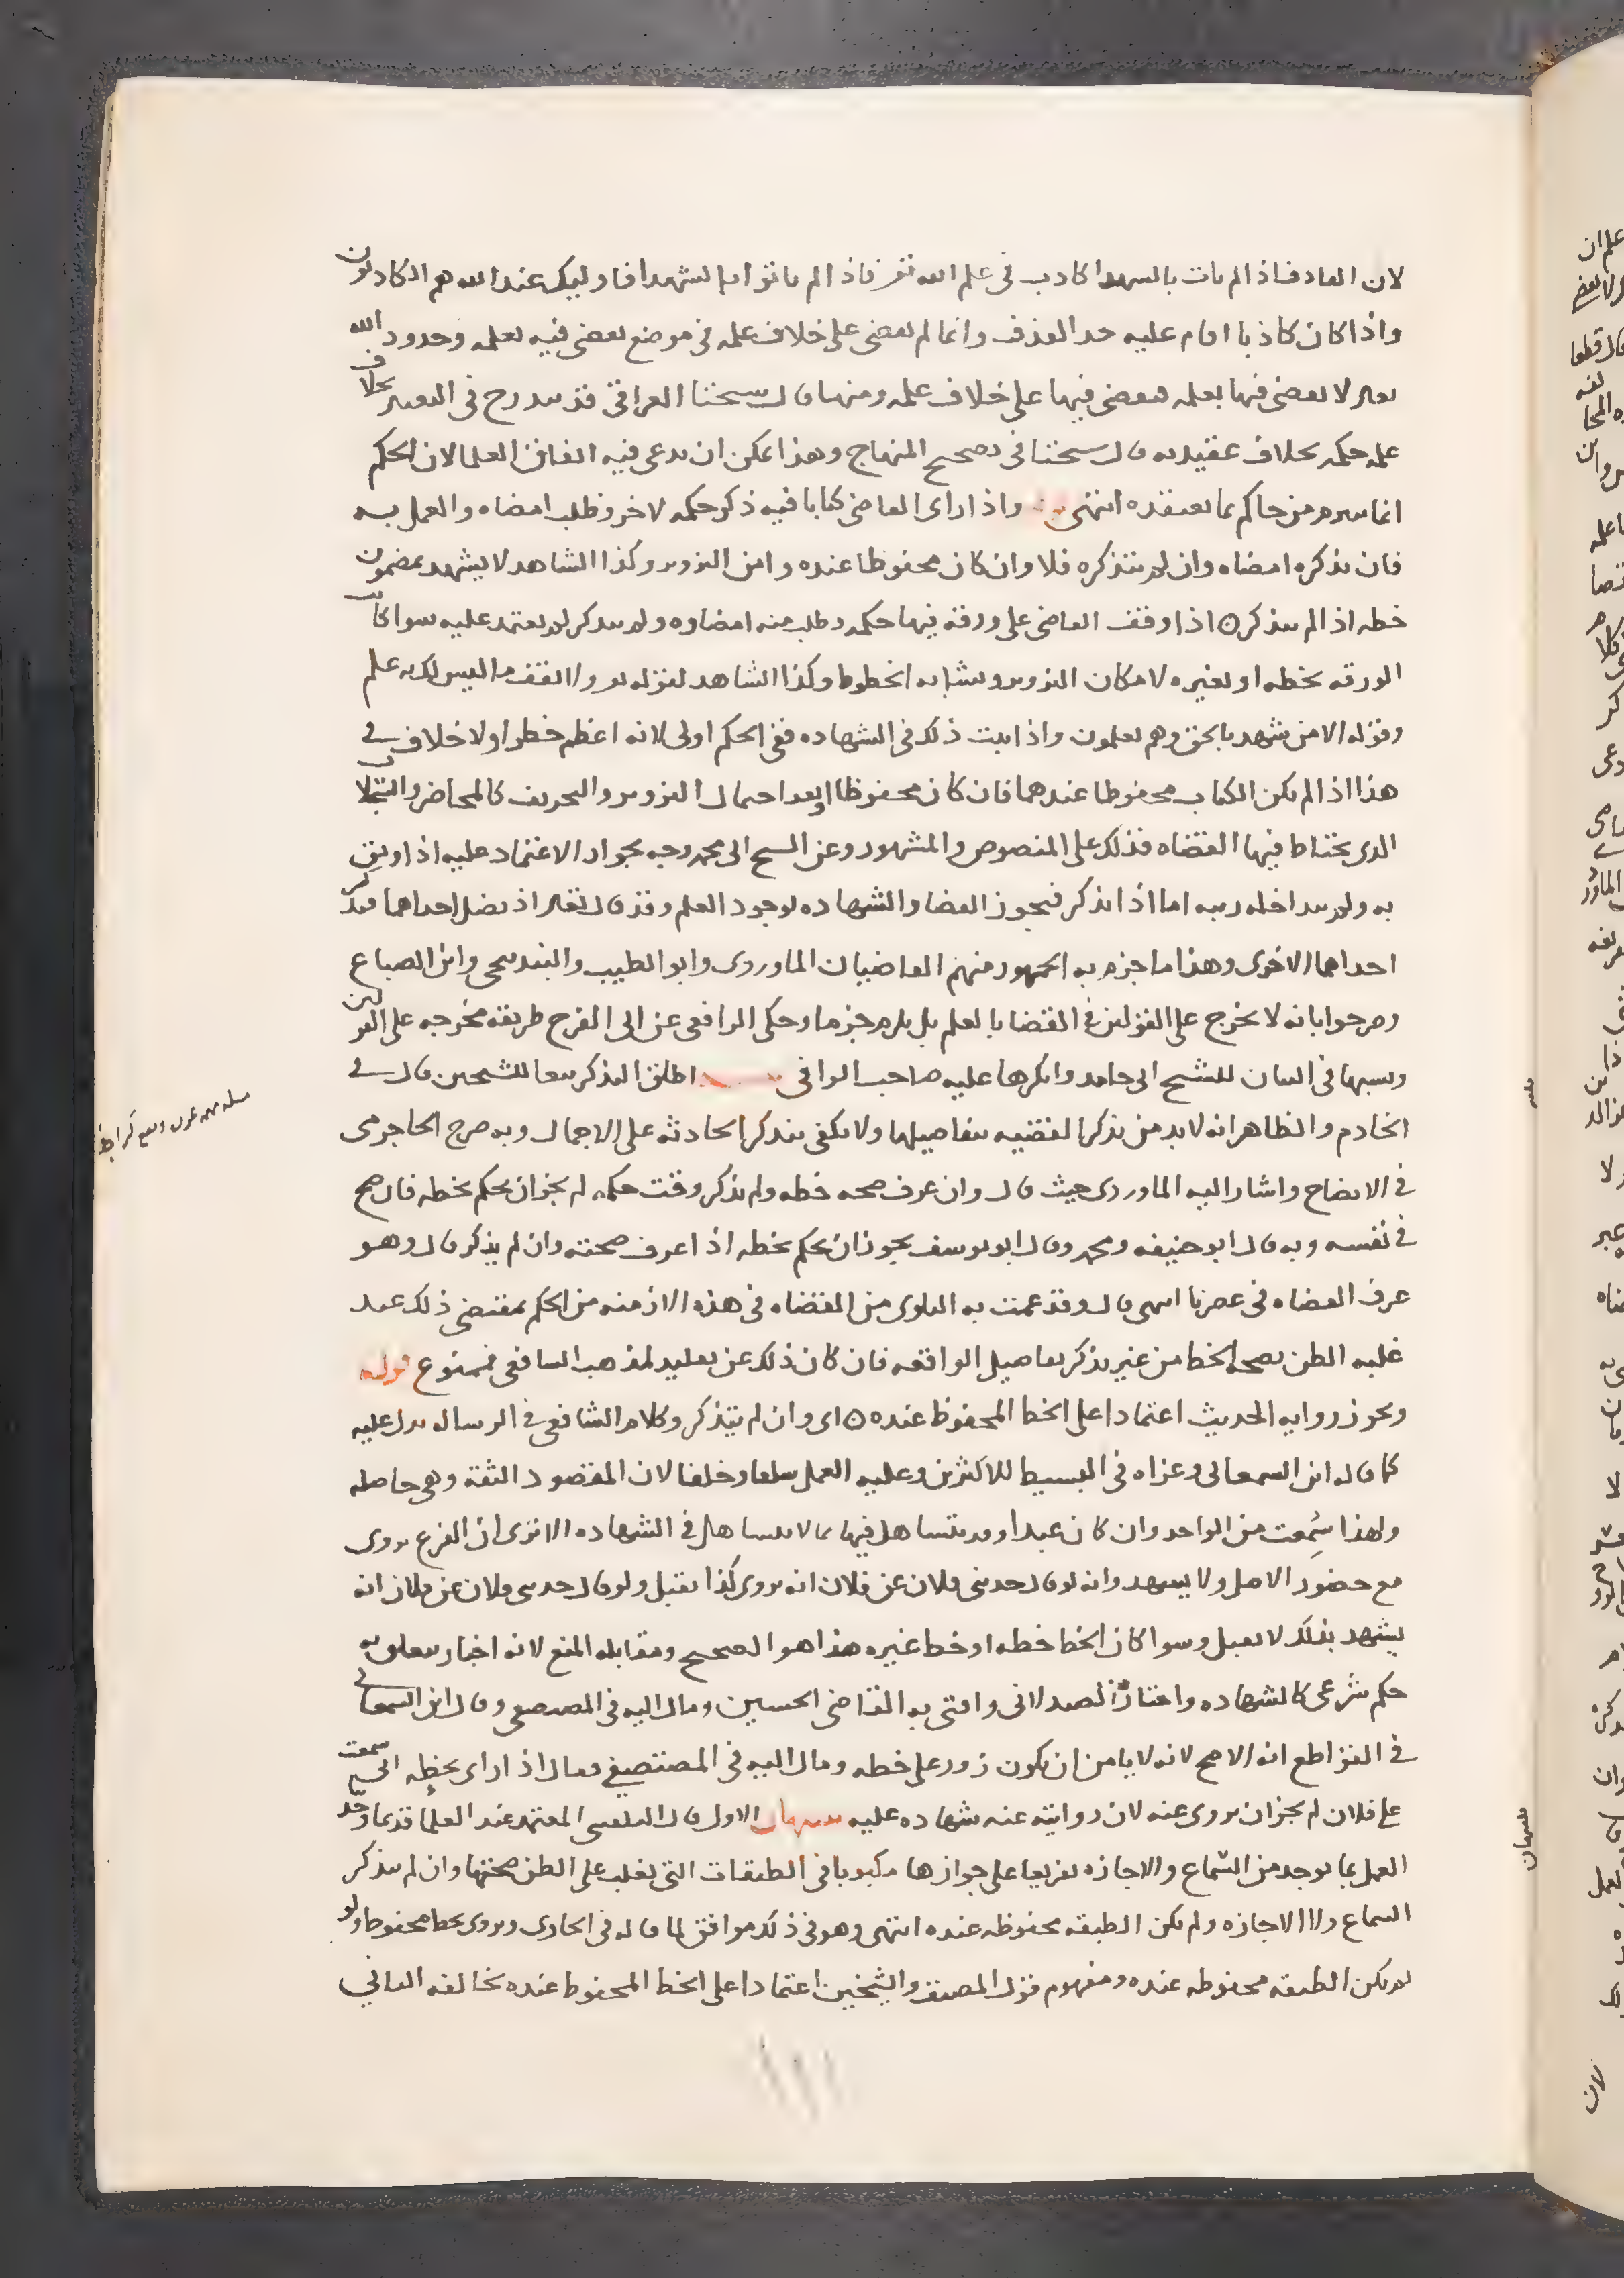 لان القاذف اذا لم يات بالشهدا كاذب في علم الله تعالى فاذ لم ياتوا بالشهدا فاوليك عند الله هم الكاذبون
واذا كان كاذبا اقام عليه حد القذف وانما لم يقضي على خلاف علمه في موضع يقضي فيه بعلمه وحدود الله
تعالى لا يقضي فيها بعلمه فيقضي فيها على خلاف علمه ومنها قال شيخنا العراقي قد يندرج في التعبير بخلاف
علمه حكمه بخلاف عقيدته قال شيخنا في تصحيح المنهاج وهذا يمكن ان يدعى فيه اتفاق العلما لان الحكم
انما يبرم من حاكم بما يعتقده انتهى واذا راى القاضي كتابا فيه ذكر حكمه لاخر وطلب امضاه والعمل به
فان تذكره امضاه وان لم يتذكره فلا وان كان محفوظا عنده وامن التزوير وكذا الشاهد لا يشهد بمضمون
خطه اذا لم يتذكر ه اذا وقف القاضي على ورقة فيها حكمه وطلب منه امضاوه ولم يتذكر لم يعتمد عليه سوا كانت
الورقه بخطه او بغيره لامكان التزوير وتشابه الخطوط وكذا الشاهد لقوله تعالى ولا تقف ما ليس لك به علم
وقوله الا من شهد بالحق وهم يعلمون واذا ثبت ذلك في الشهاده ففي الحكم اولى لانه اعظم خطرا ولا خلاف في
هذا اذا لم يكن الكتاب محفوظا عندهما فان كان محفوظا وبعد احتمال التزوير والتحريف كالمحاضر والسجلات
الذى يحتاط فيها القضاه فذلك على المنصوص والمشهور وعن الشيخ ابى محمد وجه بجواز الاعتماد عليه اذا وثق
به ولم يتداخله ريبه اما اذا تذكر فيجوز القضا والشهاده لوجود العلم وقد قال تعالى ان تضل احداهما فتذكر
احداهما الاخرى وهذا ما جزم به الجمهور منهم القاضيان الماوردى وابو الطيب والبندنيجى وابن الصباغ
وصرحوا بانه لا يخرج على القولين في القضا بالعلم بل يلزم جزما وحكى الرافعى عن ابى الفرج طريقه مخرجه على القولين
ونسبها في البيان للشيخ ابى حامد وانكرها عليه صاحب الوافى اطلق التذكر تبعا للشيخين قال في
الخادم والظاهر انه لا بد من تذكر القضيه بتفاصيلها ولا يكفى تذكر الحادثه على الاجمال وبه صرح الجاجرمى
في الايضاح واشار اليه الماوردى حيث قال وان عرف صحه خطه ولم يذكر وقت حكمه لم يجز ان يحكم بخطه فان صح
في نفسه وبه قال ابو حنيفه ومحمد وقال ابو يوسف يجوز ان يحكم بخطه اذا عرف صحته وان لم يذكر قال وهو
عرف القضاه فى عصرنا انتهى قال وقد عمت به البلوى من القضاه في هذه الازمنه من الحكم بمقتضى ذلك عند
غلبه الظن بصحه الخط من غير تذكر تفاصيل الواقعه فان كان ذلك عن تقليد لمذهب الشافعى فممنوع قوله
ويجوز روايه الحديث اعتمادا على الخط المحفوظ عنده ه اى وان لم يتذكر وكلام الشافعى في الرساله يدل عليه
كما قاله ابن السمعانى وعزاه في البسيط للاكثرين وعليه العمل سلفا وخلفا لان المقصود الثقة وهى حاصله
ولهذا سُمِعت من الواحد وان كان عبدا وقد يتساهل فيها بما لا يتساهل في الشهاده الا ترى ان الفرع يروى
مع حضور الاصل ولا يشهد وانه لو قال حدثنى فلان عن فلان انه يروى كذا تقبل ولو قال حدثنى فلان عن فلان انه
يشهد بذلك لا يقبل وسوا كان الخط خطه او خط غيره هذا هو الصحيح ومقابله المنع لانه اخبار يتعلق به
حكم شرعى كالشهاده واختاره الصيدلانى وافتى به القاضى الحسين ومال اليه فى المستصفى وقال ابن السمعانى
في القواطع انه الاصح لانه لا يامن ان يكون زور على خطه ومال اليه فى المستصفى فقال اذا راى بخطه انى سمعت
على فلان لم يجز ان يروى عنه لان روايته عنه شهاده عليه تنبيهان الاول قال البلقينى المعتمد عند العلما قديما وحديثا
العمل بما يوجد من السماع والاجازه تفريعا على جوازها مكتوبا في الطبقات التى يغلب على الظن صحتها وان لم يتذكر
السماع ولا الاجازه ولم تكن الطبقه محفوظه عنده انتهى وهو فى ذلك موافق لما قاله في الحاوى ويروى بخط محفوظ ولو
لم تكن الطبقه محفوظه عنده ومفهوم قول المصنف والشيخين اعتمادا على الخط المحفوظ عنده تخالفه الثاني